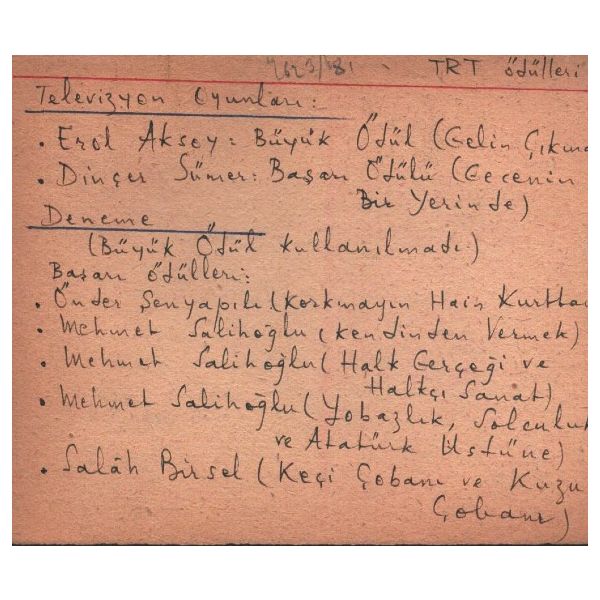 7623/181 TRT ödülleri
Televizyon Oyunları:
• Erol Aksoy: Büyük Ödül (Gelin Çıkma
• Dinçer Sümer: Başarı Ödülü (Gecenin
Bir Yerinde)
Deneme
(Büyük Ödül kullanılmadı)
Başarı ödülleri:
• Önder Şenyapılı (Korkmayın Hain Kurttan
• Mehmet Salihoğlu (Kendinden Vermek)
• Mehmet Salihoğlu (Halk Gerçeği ve
Halkçı Sanat)
• Mehmet Salihoğlu (Yobazlık, Solculuk
ve Atatürk Üstüne)
• Salâh Birsel (Keçi Çobanı ve Kuzu
Çobanı)